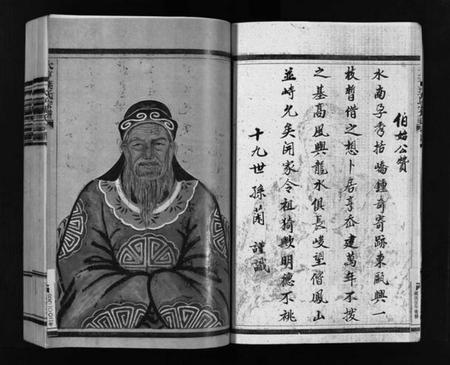 伯始公贊
水南孕秀括嶠鍾奇寄跡東甌興一
枝暫借之想卜居亭岙建萬年不拔
之基高風與龍水俱長峻望偕鳳山
並峙允矣開家令祖猗歟明德不祧
十九世孫蘭謹識